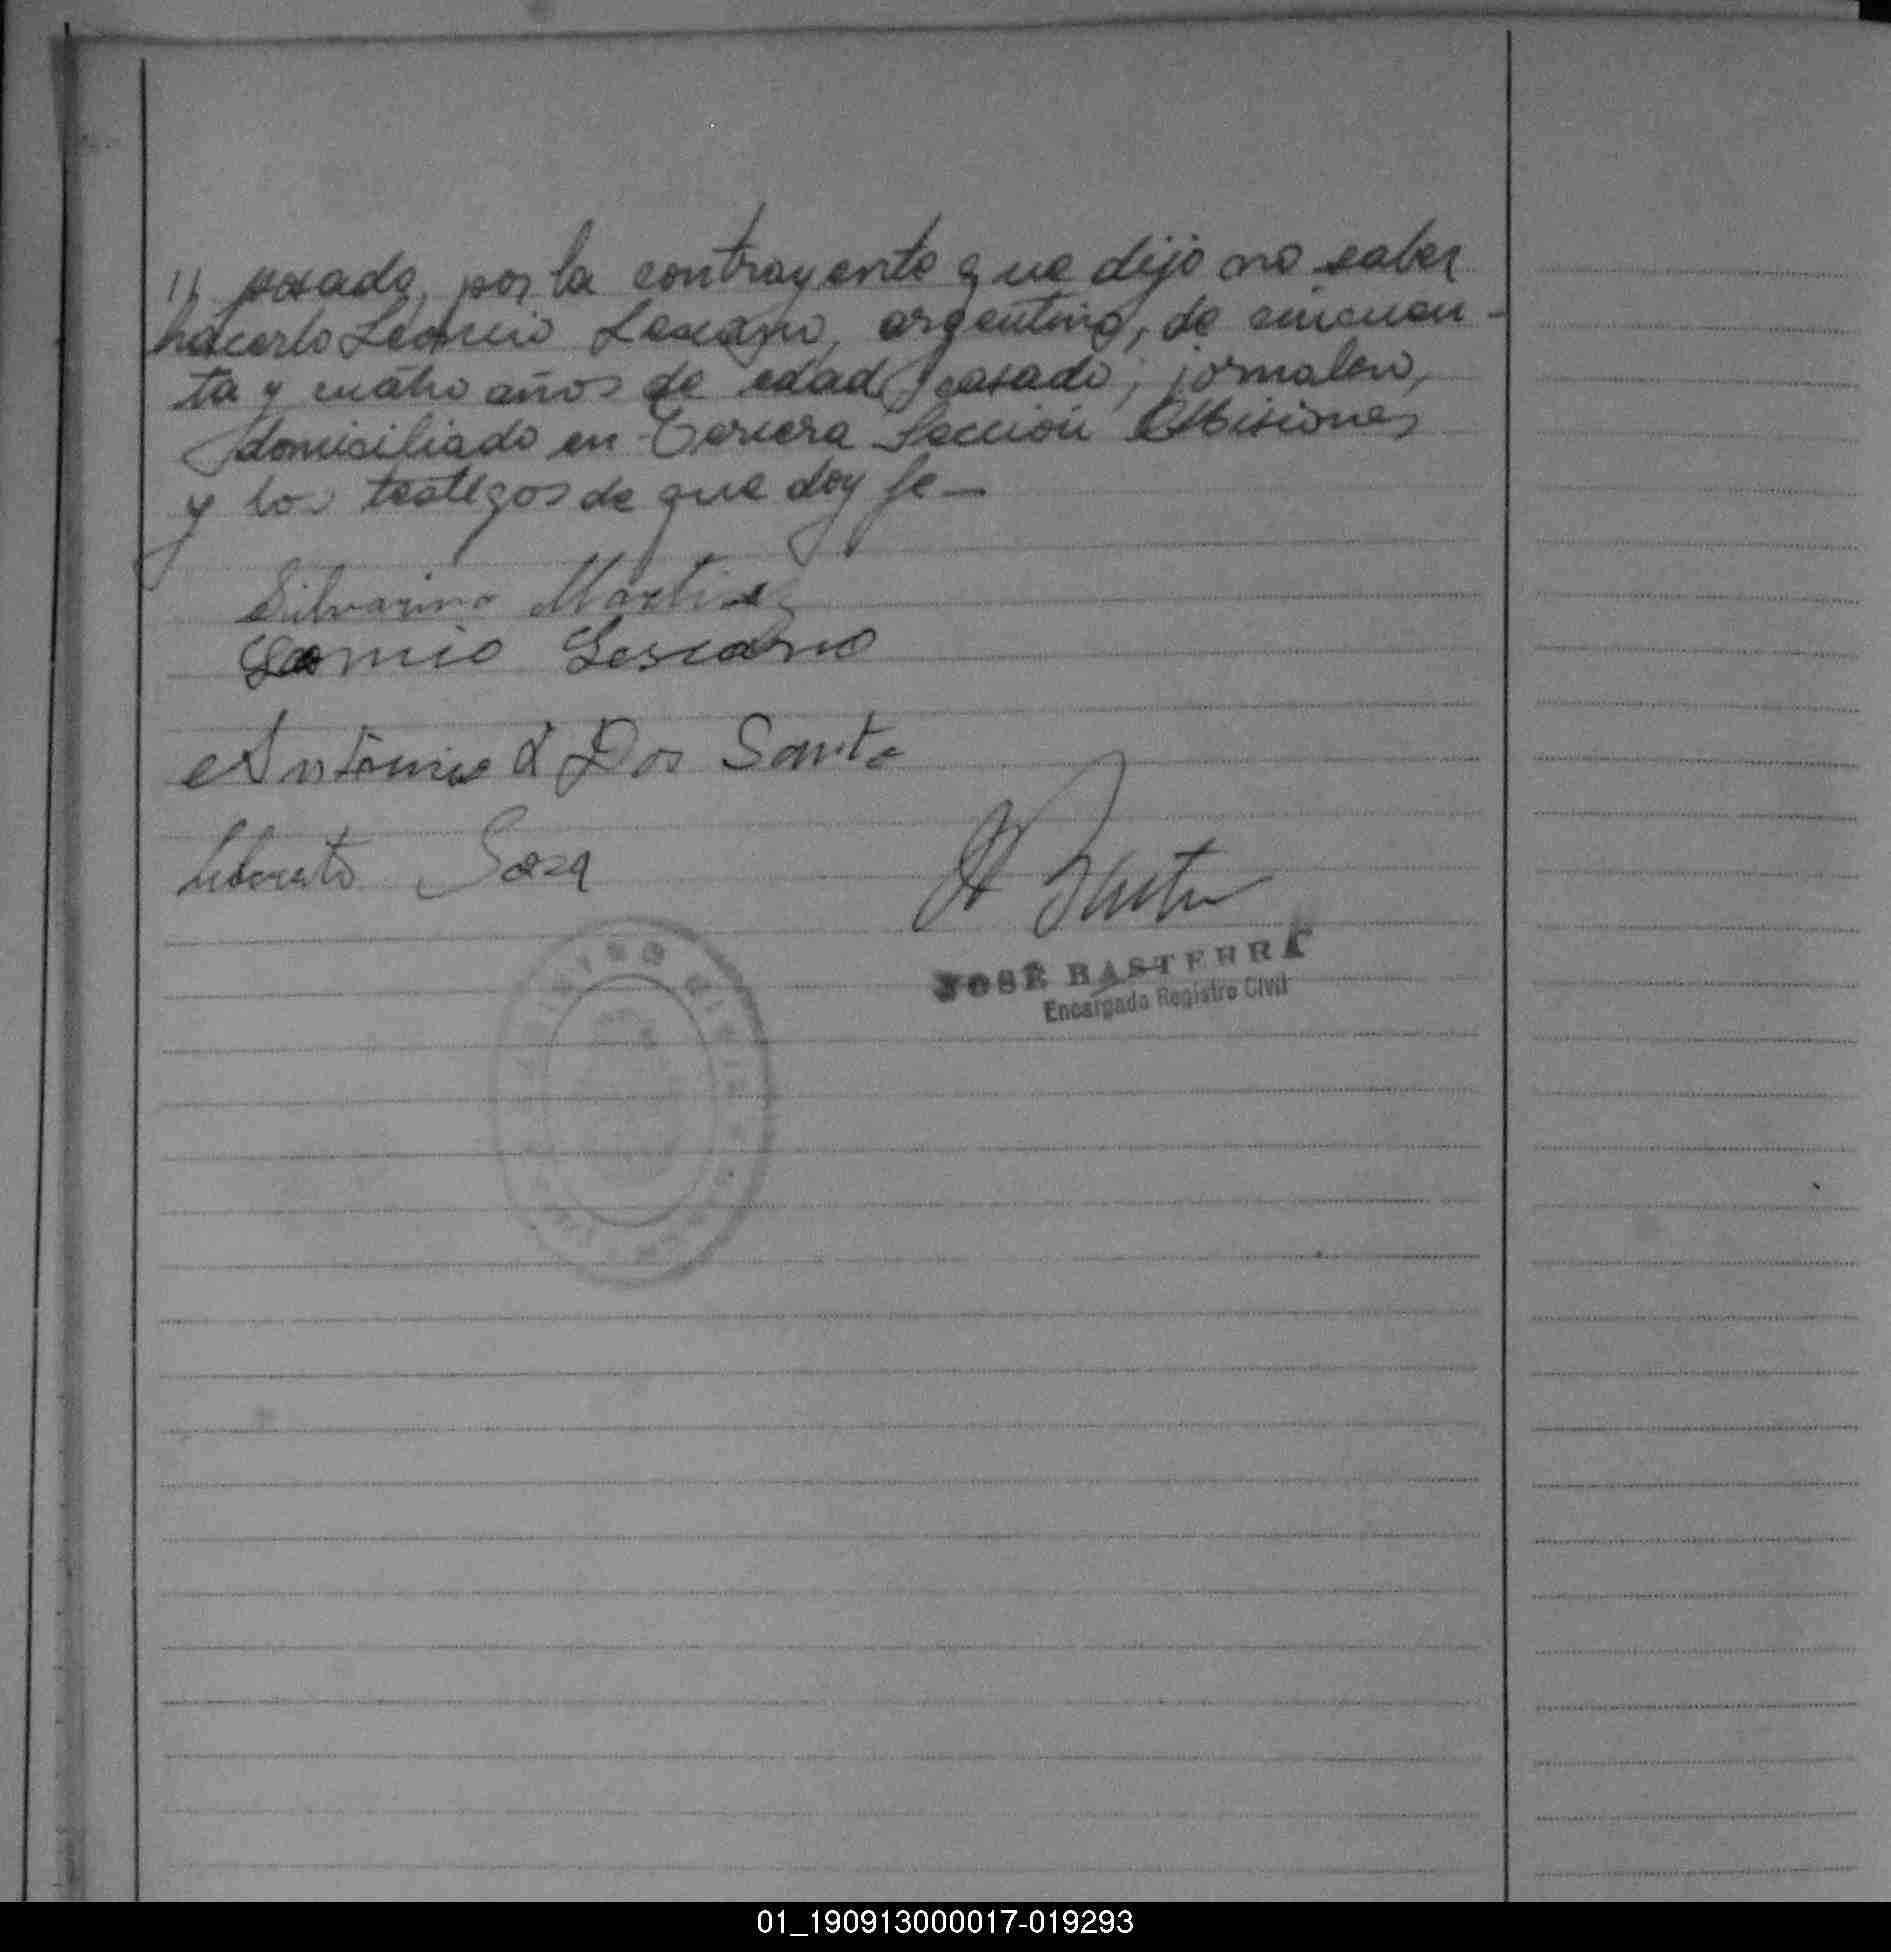 " posado, por la contrayente que dijo no saber
hacerlo Leoncio Lescano, argentino, de cincuen-
ta y cuatro años de edad, casado, jornalero,
domisiliado en Tercera Sección Misiones
y los testigos de que doy fe—
Silvarino Martinez
Leoncio Lescano
Antonio Dos Santo
Liberato Sosa
JOSÉ BASTERRA
Encargado Registro Civil
01_190913000017-019293